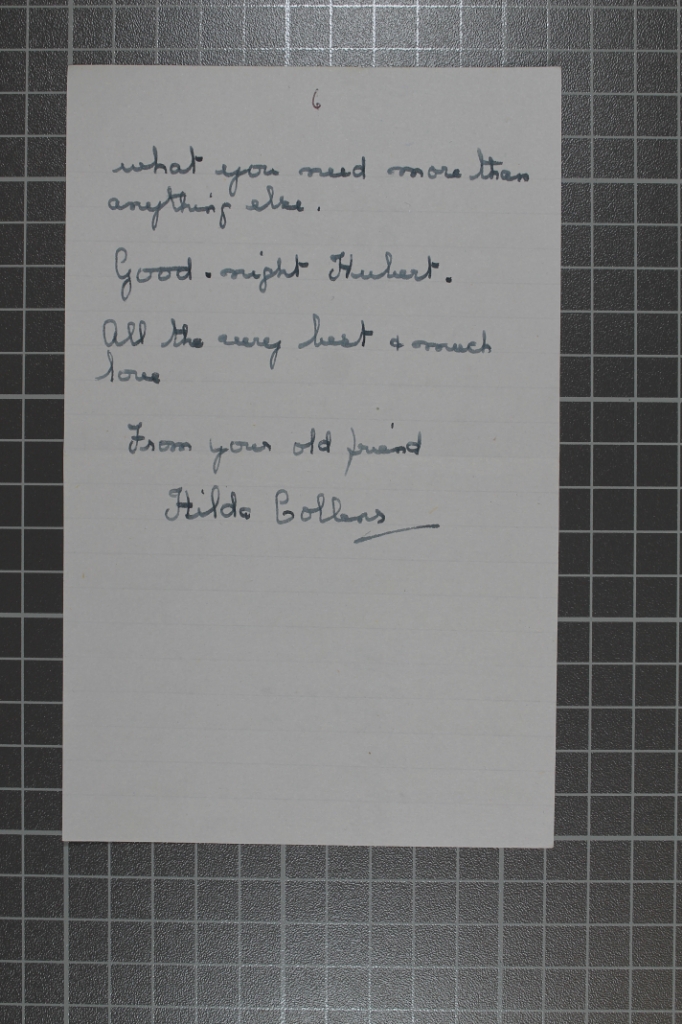 6
what you need more than
anything else.
Good.night Hubert.
All the very best & much
love
From your old friend
Hilda Collens